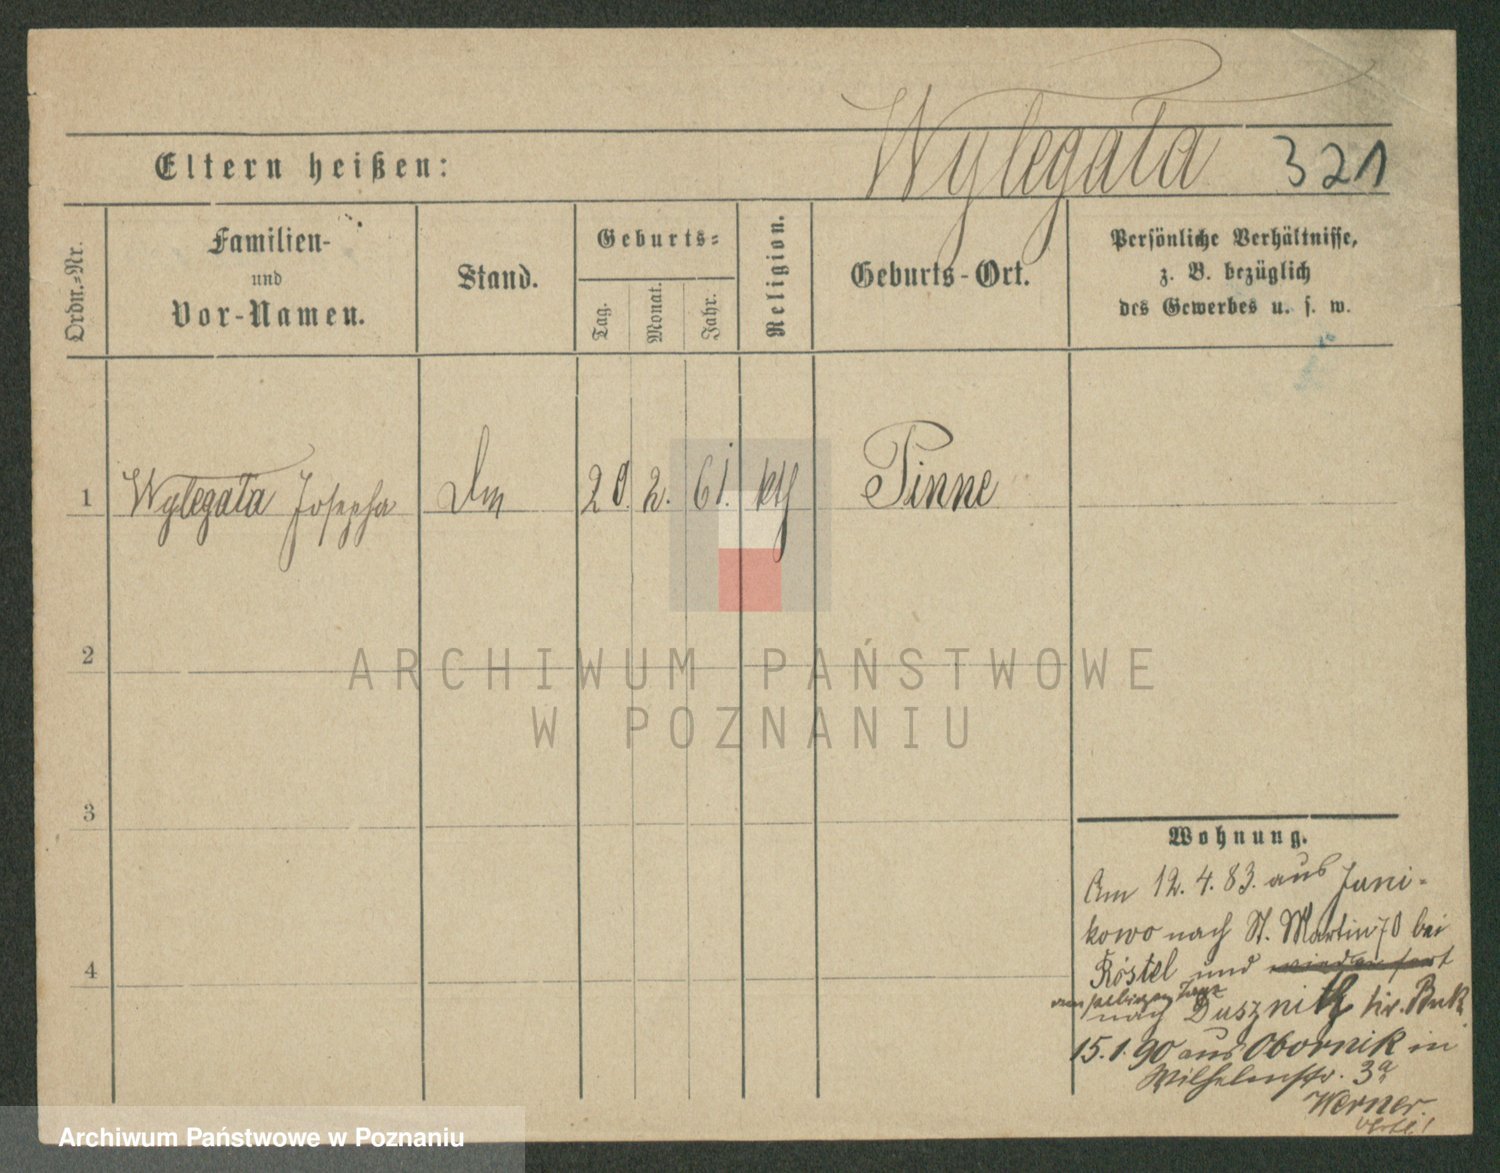 Wylegała 321
Eltern heißen:
Ordn.-Nr.
Familien-
und
Vor-Namen.
Stand.
Geburts-
Tag.
Monat.
Jahr.
Religion.
Geburts-Ort.
Persönliche Verhältnisse,
z. B. bezüglich
des Gewerbes u. s. w.
1 Wylegała Josepha Dm 20. 2. 61. kth Pinne
2
3
4
Wohnung.
Am 12. 4. 83. aus Jani-
kowo nach St. Martin 70 bei
Röstel und wieder fort
am selbigen Tage
nach Dusznik kr. Buk
15. 1. 90 aus Obornik in
Wilhelmstr. 3a
Werner.
ARCHIWUM PAŃSTWOWE
W POZNANIU
Archiwum Państwowe w Poznaniu